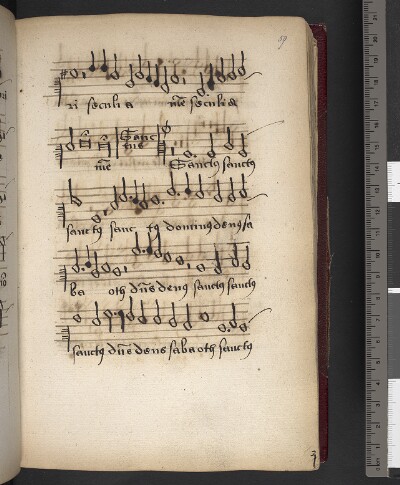 59
ri seculi a me seculi a
Sanc
tus
me Sanctus sanctus
sanctus sanc tus dominus deus sa
ba oth dns deus sanctus sanctus
sanctus dns deus sabaoth sanctus